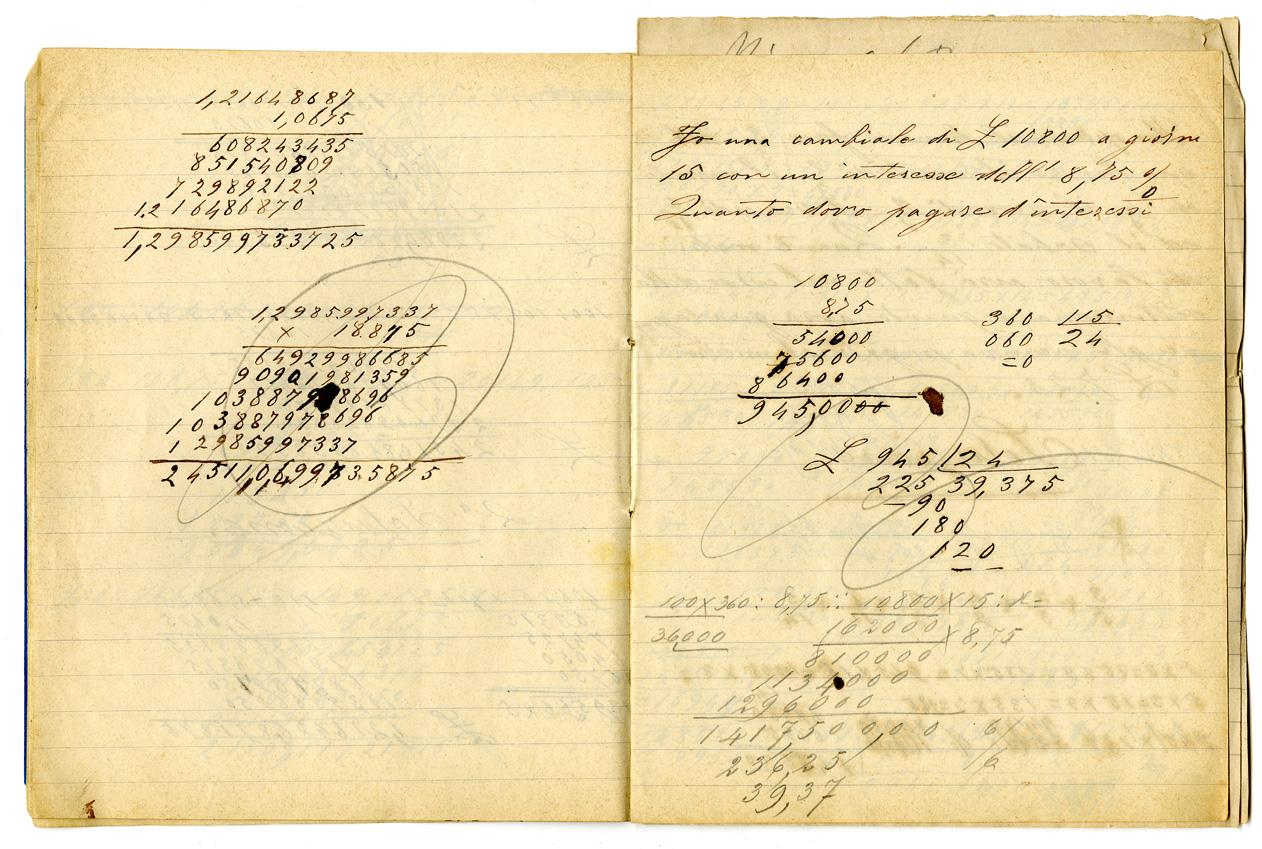 1,21648687
1,0675
608243435
851540809
729892122
1,216486870
1,298599733725
1,2985997337
× 18.875
64929986685
90901981359
10388797 8696
10388797 8696
12985997337
24511,0,699735875
Io una cambiale di £ 10800 a giorni
15 con un interesse dell' 8,75 %
Quanto dovo pagare d'interessi
10800
8,75
54000
75600
86400
945,0000
360 115
060 24
=0
£ 945 124
225 39,375
-90
180
120
100×360: 8,75:: 10800×15: x=
36000
162000 × 8,75
810000
1134000
1296000
141750 0,00 6/
236,25/ /6
39,37